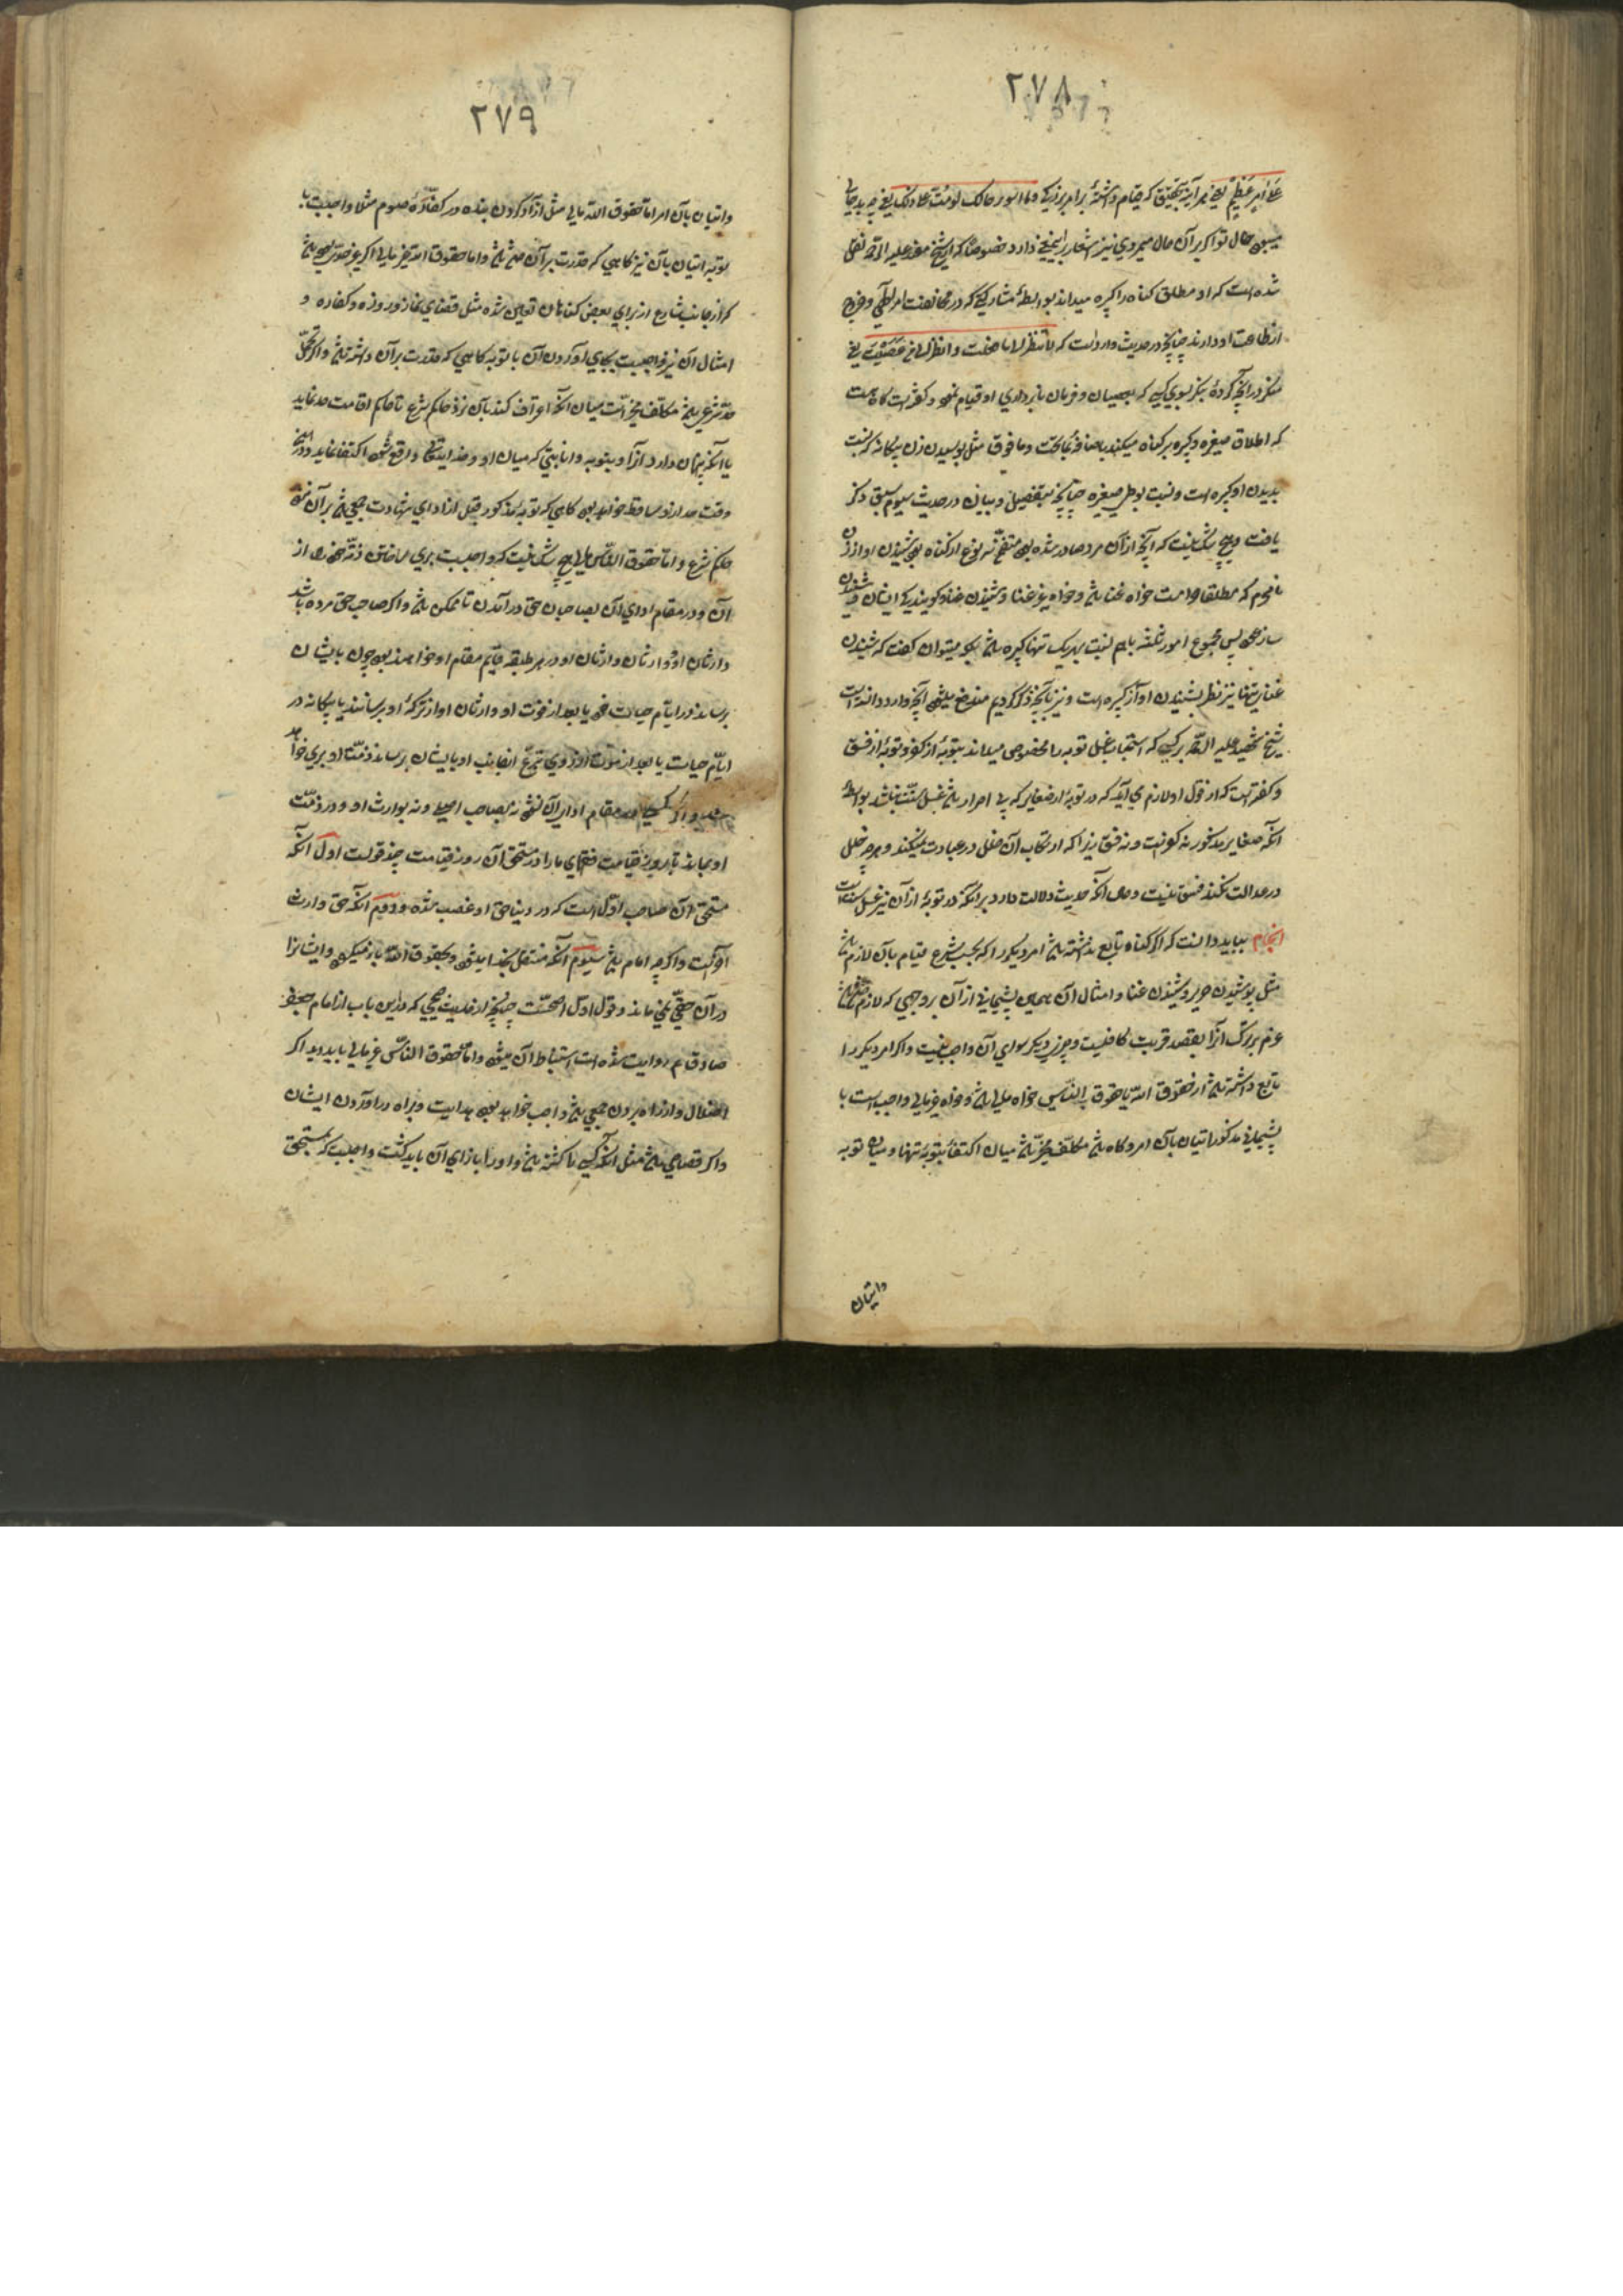 ٢٧٨
عَلیٰ اَمْرٍ عَظِیْمٍ یعنی هر آینه بتحقیق که قیام داشتهٔ بر امر بزرکی و ما اسوء حالک لو مُتَّ علی ذلک یعنی چه بد
میبود حال تو اکر بر آن حال میمردی نیز اشعار باین معنی دارد خصوصًا که از شیخ مفید علیه الرحمه نقل
شده است که او مطلق کناه را کبیره میداند بواسطهٔ مشارکتی که در مخالفت امر الهی و خروج
از طاعت او دارند چنانچه در حدیث وارد است که لا تنظر الی ما فعلت و انظر الی من عَصَیْتَ یعنی
منکر در آنچه کردهٔ بنکر بسوی کسی که بعصیان و فرمان نابرداری او قیام نموده و کفته است کاه هست
که اطلاق صغیره و کبیره بر کناه میکنند باضافه بما تحت و ما فوق مثل بوسیدن زن بیکانه که نسبت
بدیدن او کبیره است و نسبت بوطی صغیره چنانچه بتفصیل و بیان در حدیث سیوم سبق ذکر
یافت و هیچ شک نیست که آنچه از آن مرد صادر شده بود متضمن سه نوع از کناه بود شنیدن آواز زن
نامحرم که مطلقا حرامست خواه غنا باشد و خواه غیر غنا و شنیدن غنا و کویندکی ایشان و شنیدن
ساز عود پس مجموع امور ثلثه باهم نسبت بهر یک تنها کبیره باشد بلکه میتوان کفت که شنیدن
غنای تنها نیز نظر بشنیدن آواز کبیره است و نیز بآنچه ذکر کردیم مندفع میشود آنچه وارد دانسته است
شیخ شهید علیه الرحمه بر کسی که استحباب غسل توبه را مخصوص میداند بتوبهٔ از کفر و توبهٔ از فسق
و کفته است که از قول او لازم می آید که در توبهٔ از صغایر که بی اصرار باشد غسل سنّت نباشد بواسطهٔ
آنکه صغایر مذکور نه کفر است و نه فسق زیرا که ارتکاب آن خللی در عبادت نمیکند و هرچه خلل
در عدالت نکند فسق نیست و حال آنکه حدیث دلالت دارد بر آنکه در توبهٔ از آن نیز غسل سنت است
انجام بباید دانست که اکر کناه تابع نداشته باشد امر دیکر را که بحسب شرع قیام بآن لازم باشد
مثل پوشیدن حریر و شنیدن غنا و امثال آن همین پشیمانی از آن بر وجهی که لازم داشته باشد
عزم بر ترک آنرا بقصد قربت کافیست و چیز دیکر سوای آن واجب نیست و اکر امر دیکر را
تابع داشته باشد از حقوق الله یا حقوق الناس خواه مالی باشد و خواه غیر مالی واجب است با
پشیمانی مذکور اتیان بآن امر و کاه باشد مکلف مخیّر باشد میان اکتفا بتوبهٔ تنها و میان توبه
واتیان
٢٧٩
واتیان بآن امر اما حقوق الله مالی مثل آزاد کردن بنده در کفارهٔ صوم مثلا واجبست با
توبه اتیان بآن نیز کاهی که قدرت بر آن باشد و اما حقوق الله غیر مالی اکر غیر حدی بوده باشد
که از جانب شارع از برای بعض کناهان تعیین شده مثل قضای نماز و روزه و کفاره و
امثال آن نیز واجبست بجای آوردن آن با توبه کاهی که قدرت بر آن داشته باشد و اکر
حدّ شرعی باشد مکلف مخیّر است میان آنکه اعتراف کند بآن نزد حاکم شرع تا حاکم اقامت حد نماید
یا آنکه پنهان دارد آنرا و بتوبه و انابتی که میان او و خدایتعالی واقع شود اکتفا نماید و در این
وقت حد از او ساقط خواهد بود کاهی که توبهٔ مذکور قبل از ادای شهادت جمعی باشد بر آن نزد
حاکم شرع و اما حقوق الناس مالی هیچ شک نیست که واجبست بری ساختن ذمّه خود را از
آن و در مقام ادای آن بصاحبان حق درآمدن تا ممکن باشد و اکر صاحب حق مرده باشد
وارثان او و وارثان وارثان او در هر طبقه قایم مقام او خواهند بود چون بایشان
برساند در ایام حیات خود یا بعد از فوت او وارثان او از ترکهٔ او برسانند یا بیکانه در
ایّام حیات یا بعد از فوت او از روی تبرّع از جانب او بایشان برساند ذمّت او بری خواهد
شد و اکر کسی در مقام ادای آن نشود نه بصاحب اصل و نه بوارث او و در ذمّت
او بماند تا روز قیامت فقهای ما را در مستحق آن روز قیامت چند قولست اول آنکه
مستحق آن صاحب اوّل است که در دنیا حق او غصب شده و دویم آنکه حق وارث
آخر است و اکر چه امام باشد سیوم آنکه منتقل بخدا میشود و بحقوق الله باز میکردد و ایشانرا
در آن حقّی نمی ماند و قول اول اصحّ است چنانچه از حدیث صحیحی که در این باب از امام جعفر
صادق ع روایت شده است استنباط آن میشود و اما حقوق الناس غیر مالی باید دید اکر
اضلال و از راه بردن جمعی باشد واجب خواهد بود هدایت و براه درآوردن ایشان
و اکر قصاصی باشد مثل آنکه کسی را کشته باشد و او را بازای آن باید کشت واجبست که بمستحق